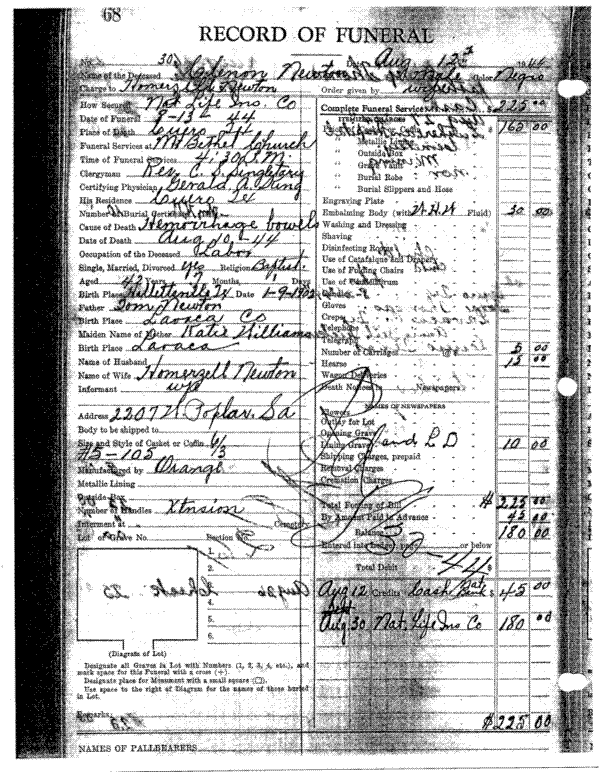 68
RECORD OF FUNERAL
No. 30 Date Aug 12 1944
Name of the Deceased Newton Male Color Negro
Charge to Homerzell Newton Order given by
How Secured Nat. Life Ins. Co
Date of Funeral 8-13-44
Place of Death Cuero
Funeral Services at Mt Bethel Church
Time of Funeral Services 4:30 P.M.
Clergyman Rev. C. S. Singletery
Certifying Physician Gerald A. King
His Residence Cuero Tex
Number of Burial Certificate
Cause of Death Hemorrhage bowels
Date of Death Aug 10-44
Occupation of the Deceased Labor
Single, Married, Divorced yes Religion Baptist
Aged 42 Years 7 Months, 1 Days
Birth Place Hallettsville Tx Date 1-9-1902
Father Tom Newton
Birth Place Lavaca Co
Maiden Name of Mother Katie Williams
Birth Place Lavaca
Name of Husband
Name of Wife Homerzell Newton
Informant wife
Address 2207 N. Poplar. Sa
Body to be shipped to
Size and Style of Casket or Coffin 6/3
#5-105 13
Manufactured by Orange
Metallic Lining
Outside Box
Number of Handles Xtnsion
Interment at Cemetery
Lot or Grave No. Section No.
1.
2.
3.
4.
5.
6.
(Diagram of Lot)
Designate all Graves in Lot with Numbers (1, 2, 3, 4, etc.), and
mark space for this Funeral with a cross (+).
Designate place for Monument with a small square (□).
Use space to the right of Diagram for the names of those buried
in Lot.
Remarks:
NAMES OF PALLBEARERS
Complete Funeral Services $ 225 00
165 00
" Metallic Lining
" Outside Box
" Grave Vault
" Burial Robe
" Burial Slippers and Hose
Engraving Plate
Embalming Body (with W.H.W Fluid) 30 00
Washing and Dressing
Shaving
Disinfecting Rooms
Use of Catafalque and Drapery
Use of Folding Chairs
Use of
Candles
Gloves
Crepe
Telephone
Telegraph
Number of Carriages 5 00
Hearse 15 00
Wagon Deliveries
Death Notices in Newspapers
NAMES OF NEWSPAPERS
Flowers
Outlay for Lot
Opening Grave
Lining Grave and L D 10 00
Shipping Charges, prepaid
Removal Charges
Cremation Charges
Total Footing of Bill $ 225 00
By Amount Paid in Advance 45 00
Balance 180 00
Entered into Ledger, page 32 or below
Total Debit -44 $
Aug 12 Credits Cash Nat Bank $ 45 00
Aug 30 Nat. Life Ins Co 180 00
$225 00